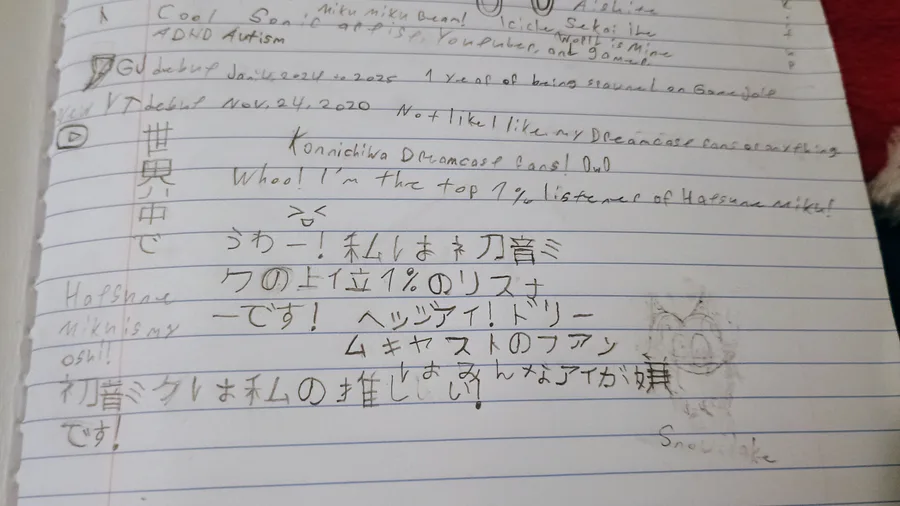 Miku Miku Beam!
Aishite
Cool Sonic artist, Youtuber, and gamer
Icicle Sekai Ihe
World is Mine
ADHD Autism
GJ debut Jan 4, 2024 to 2025 1 year of being started on Gamejolt
YT debut Nov, 24, 2020
Not like I like my Dreamcast fans or anything
世界中で
Konnichiwa Dreamcast fans! OuO
Whoo! I'm the top 1% listener of Hatsune Miku!
うわー！私は初音ミ
クの上位1%のリスナ
ーです！ ヘッジアイ！ドリー
ムキャストのファン
はみんなアイが嫌
い！
Hatsune
Miku is my
oshi!
初音ミクは私の推し
です！
Snowflake